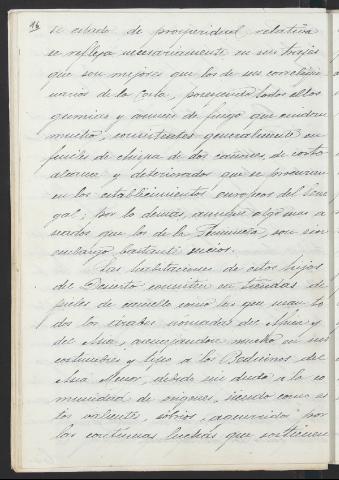 16
su estado de prosperidad relativa
se refleja necesariamente en sus trajes
que son mejores que los de sus correligio-
narios de la Costa, poseyendo todos ellos
gumias y armas de fuego que cuidan
mucho, consistentes generalmente en
fusiles de chispa de dos cañones, de corto
alcance y deteriorados que se procuran
en los establecimientos europeos del Sene-
gal; por lo demas, aunque algo mas a-
seados que los de la son sin
embargo bastante sucios.
Las habitaciones de estos hijos
del Desierto consisten en tiendas de
pieles de camello como las que usan to-
dos los árabes nómadas del Africa y
del Asia, asemejandose mucho en sus
costumbres y tipo a los Beduinos del
Asia Menor, debido sin duda a la co-
munidad de origenes, siendo como es-
tos valientes, sóbrios, aguerridos por
las contínuas luchas que sostienen